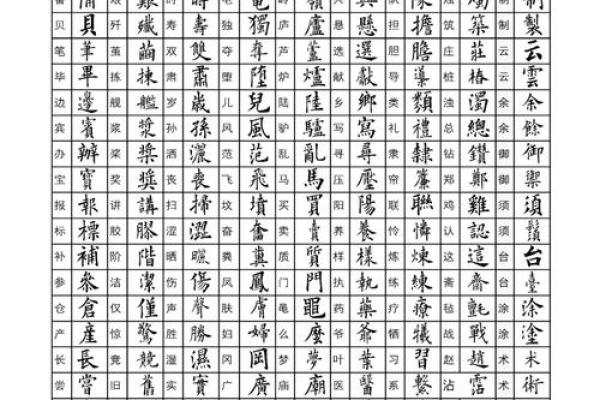 贝 貝 歼 殲 寿 壽 独 獨 庐 廬 悬 懸 担 擔 筑 築 制 製
笔 筆 茧 繭 双 雙 夺 奪 芦 蘆 选 選 胆 膽 庄 莊 云 云
毕 畢 拣 揀 肃 肅 堕 墮 炉 爐 献 獻 导 導 桩 樁 云 雲
边 邊 舰 艦 岁 歲 儿 兒 陆 陸 乡 鄉 类 類 浊 濁 余 余
宾 賓 浆 漿 孙 孫 风 風 驴 驢 写 寫 礼 禮 总 總 余 餘
办 辦 桨 槳 洒 灑 范 范 乱 亂 寻 尋 隶 隸 钻 鑽 御 御
宝 寶 奖 獎 丧 喪 飞 飛 马 馬 压 壓 帘 簾 郑 鄭 御 禦
报 報 讲 講 扫 掃 坟 墳 买 買 阳 陽 联 聯 鸡 雞 须 須
标 標 胶 膠 涩 澀 奋 奮 卖 賣 养 養 怜 憐 认 認 须 鬚
补 補 阶 階 晒 曬 粪 糞 质 質 样 樣 炼 煉 这 這 台 台
参 參 洁 潔 伤 傷 凤 鳳 门 門 执 執 练 練 斋 齋 台 臺
仓 倉 仅 僅 声 聲 肤 膚 龟 龜 药 藥 疗 療 毡 氈 涂 涂
产 產 惊 驚 胜 勝 妇 婦 么 麼 爷 爺 牺 犧 战 戰 涂 塗
长 長 竞 競 湿 濕 冈 岡 梦 夢 叶 葉 习 習 赵 趙 术 术
尝 嘗 旧 舊 实 實 广 廣 庙 廟 医 醫 系 繫 沾 霑 术 術